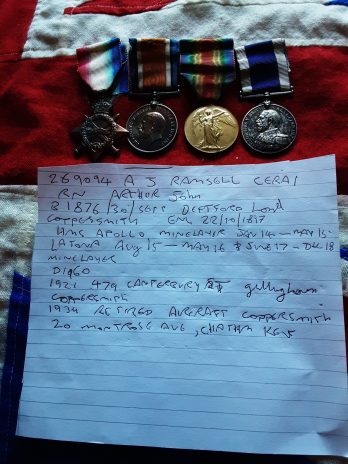 269094 A J RAMSELL CERA1
RN ARTHUR John
B 1876/30/SEPT DEPTFORD Lond
COPPERSMITH ENL 22/10/1897
HMS APOLLO MINELAYER JAN 14 - MAY 15
LATONA Aug 15 - MAY 16 & JUNE 17 - DEC 18
MINELAYER
D 1960
1921 479 CANTERBURY ST gillingham
COPPERSMITH
1939 RETIRED AIRCRAFT COPPERSMITH
20 MONTROSE AVE, CHATHAM KENT